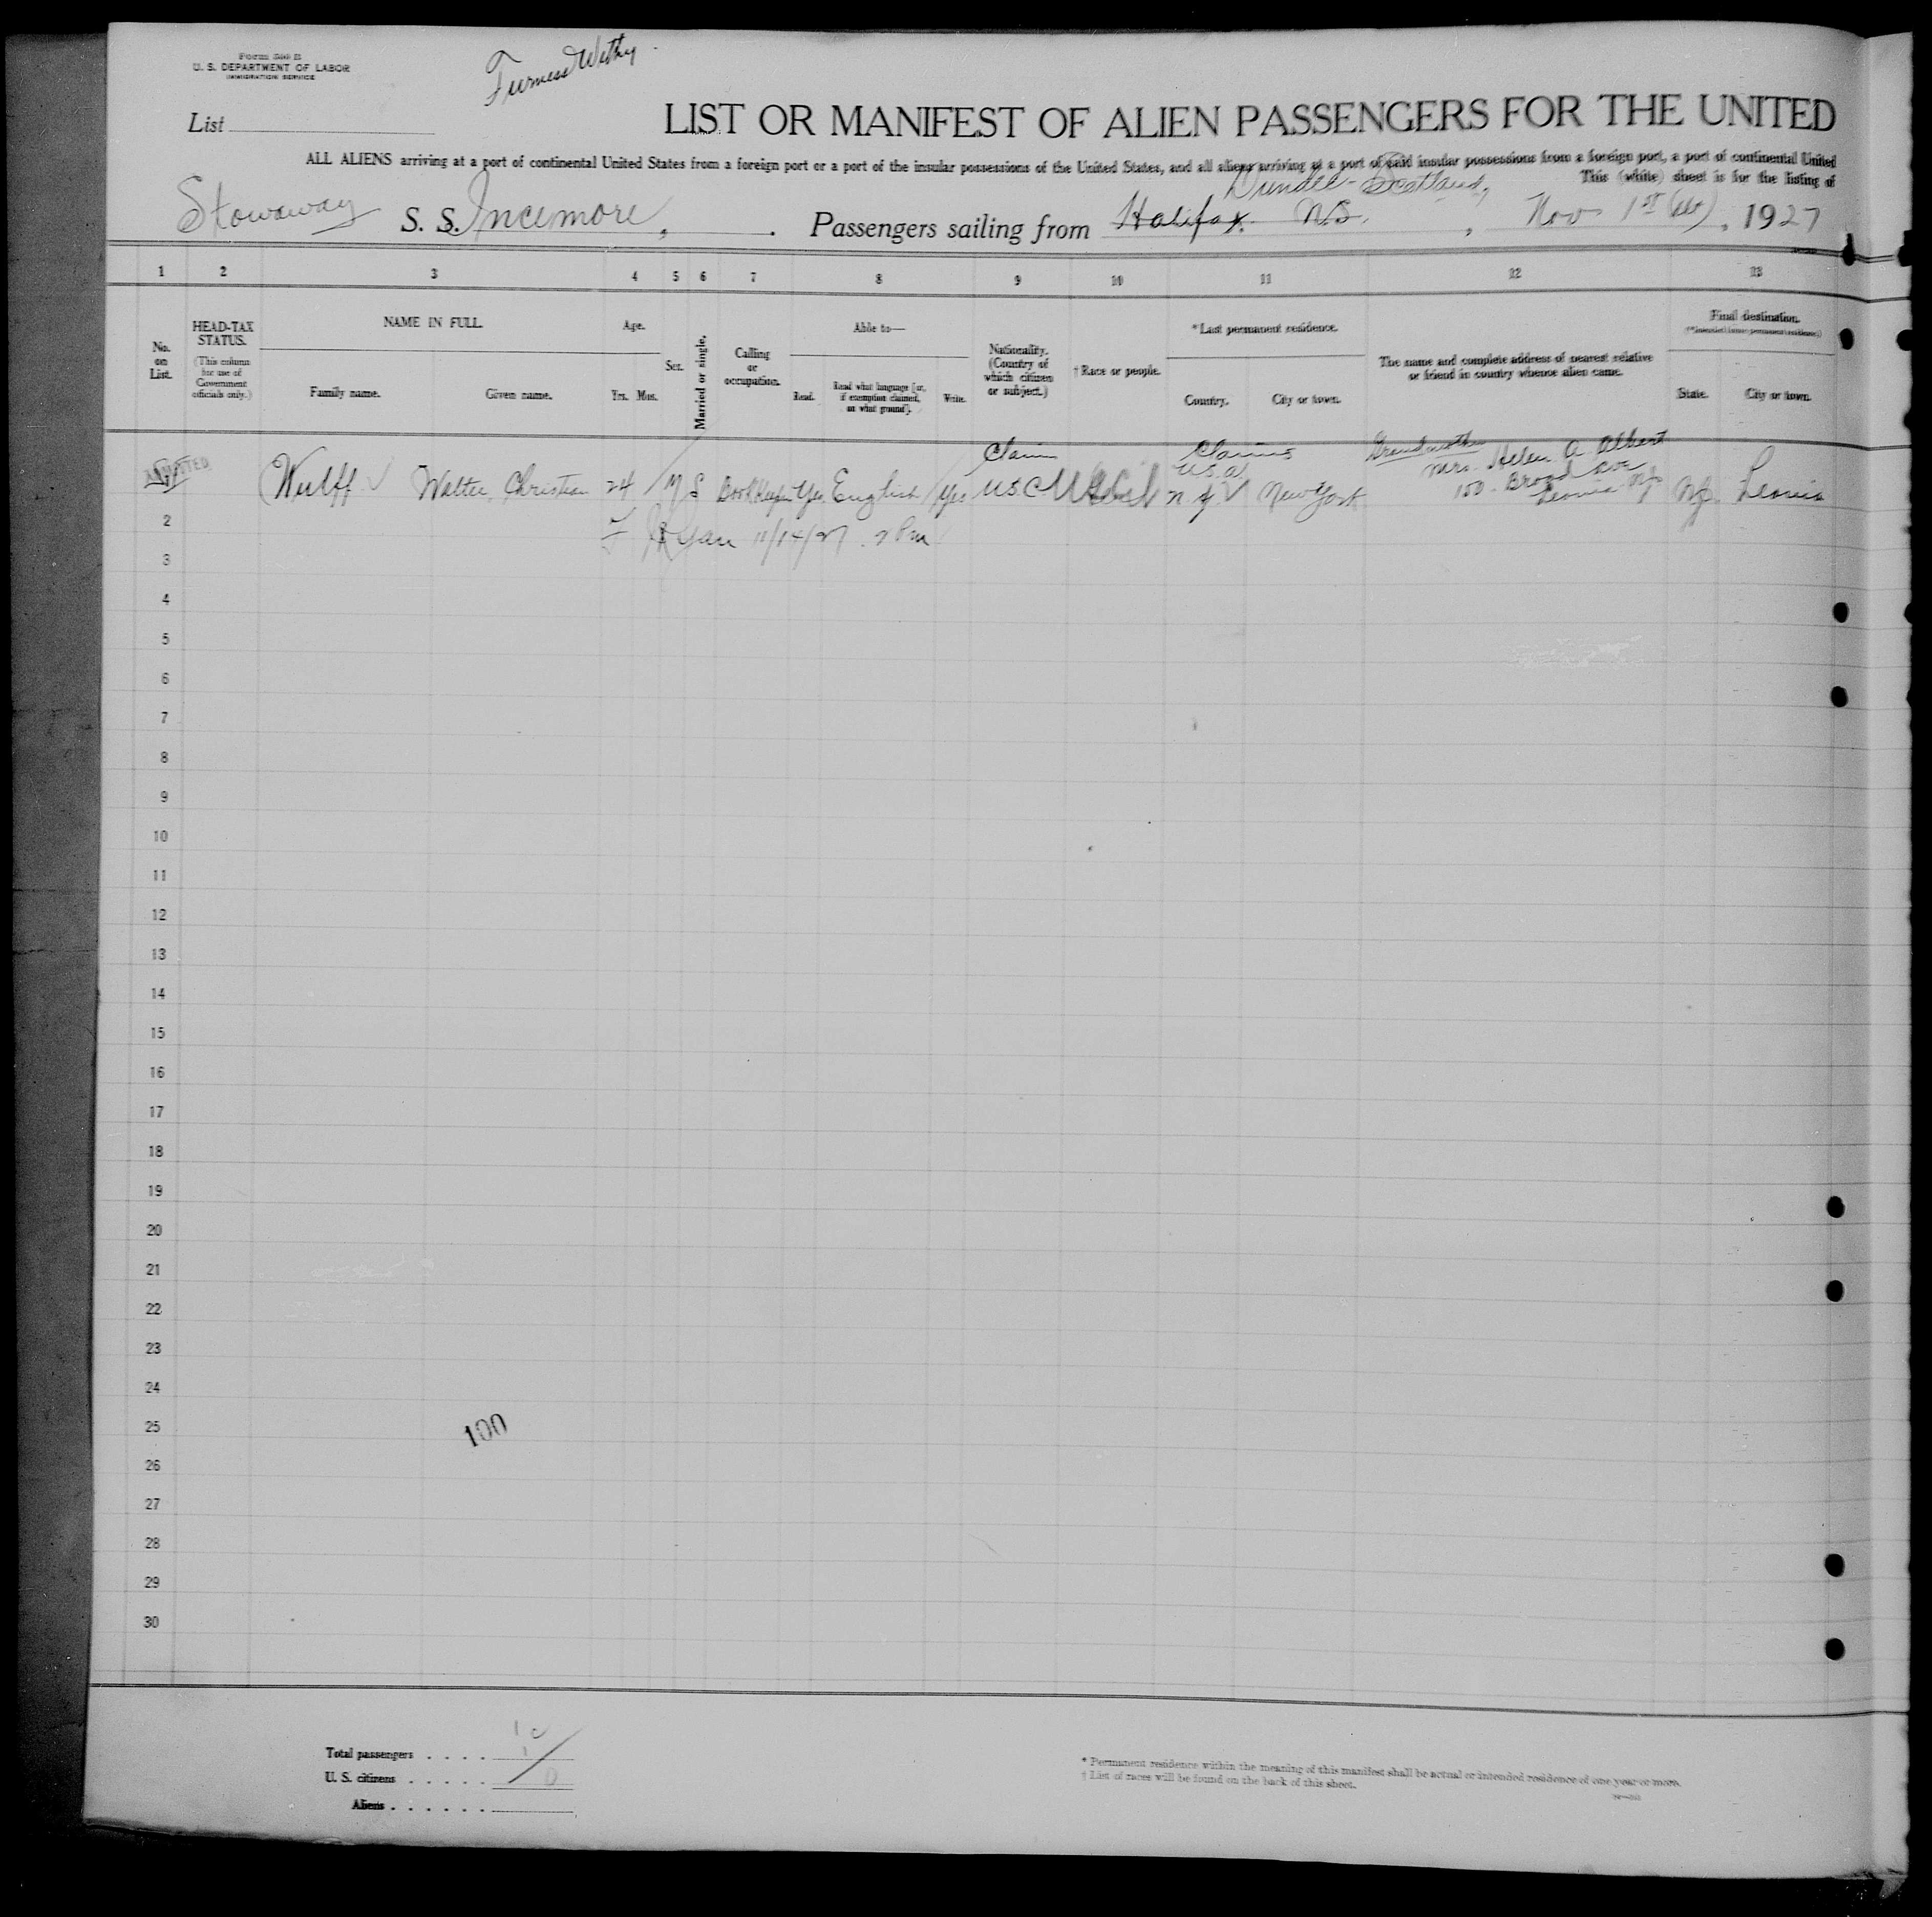 Form 500 B
U. S. DEPARTMENT OF LABOR
IMMIGRATION SERVICE
Furness Withy
List
LIST OR MANIFEST OF ALIEN PASSENGERS FOR THE UNITED
ALL ALIENS arriving at a port of continental United States from a foreign port or a port of the insular possessions of the United States, and all aliens arriving at a port of said insular possessions from a foreign port, a port of continental United
This (white) sheet is for the listing of
Dundee - Scotland,
Stowaway S. S. Incemore, Passengers sailing from Halifax. N.S. , Nov 1st , 1927
1 2 3 4 5 6 7 8 9 10 11 12 13
No. on List.
HEAD-TAX STATUS.
(This column for use of Government officials only.)
NAME IN FULL.
Family name. Given name.
Age.
Yrs. Mos.
Sex.
Married or single.
Calling or occupation.
Able to—
Read. Read what language [or, if exemption claimed, on what ground]. Write.
Nationality. (Country of which citizen or subject.)
† Race or people.
* Last permanent residence.
Country. City or town.
The name and complete address of nearest relative or friend in country whence alien came.
Final destination.
(*Intended future permanent residence)
State. City or town.
ADMITTED
Claims Claims Grandmother
Wulff Walter, Christian 24 M S Bookkeeper Yes English Yes U.S.C. U.S.A. N.Y. New York Mrs. Helen A Albert N.J. Leonia
150 Broad Ave
Leonia N.J.
Ryan 11/14/27 . 2 Pm
2
3
4
5
6
7
8
9
10
11
12
13
14
15
16
17
18
19
20
21
22
23
24
25
100
26
27
28
29
30
Total passengers . . . . 1
U. S. citizens . . . . .
Aliens . . . . . .
* Permanent residence within the meaning of this manifest shall be actual or intended residence of one year or more.
† List of races will be found on the back of this sheet.